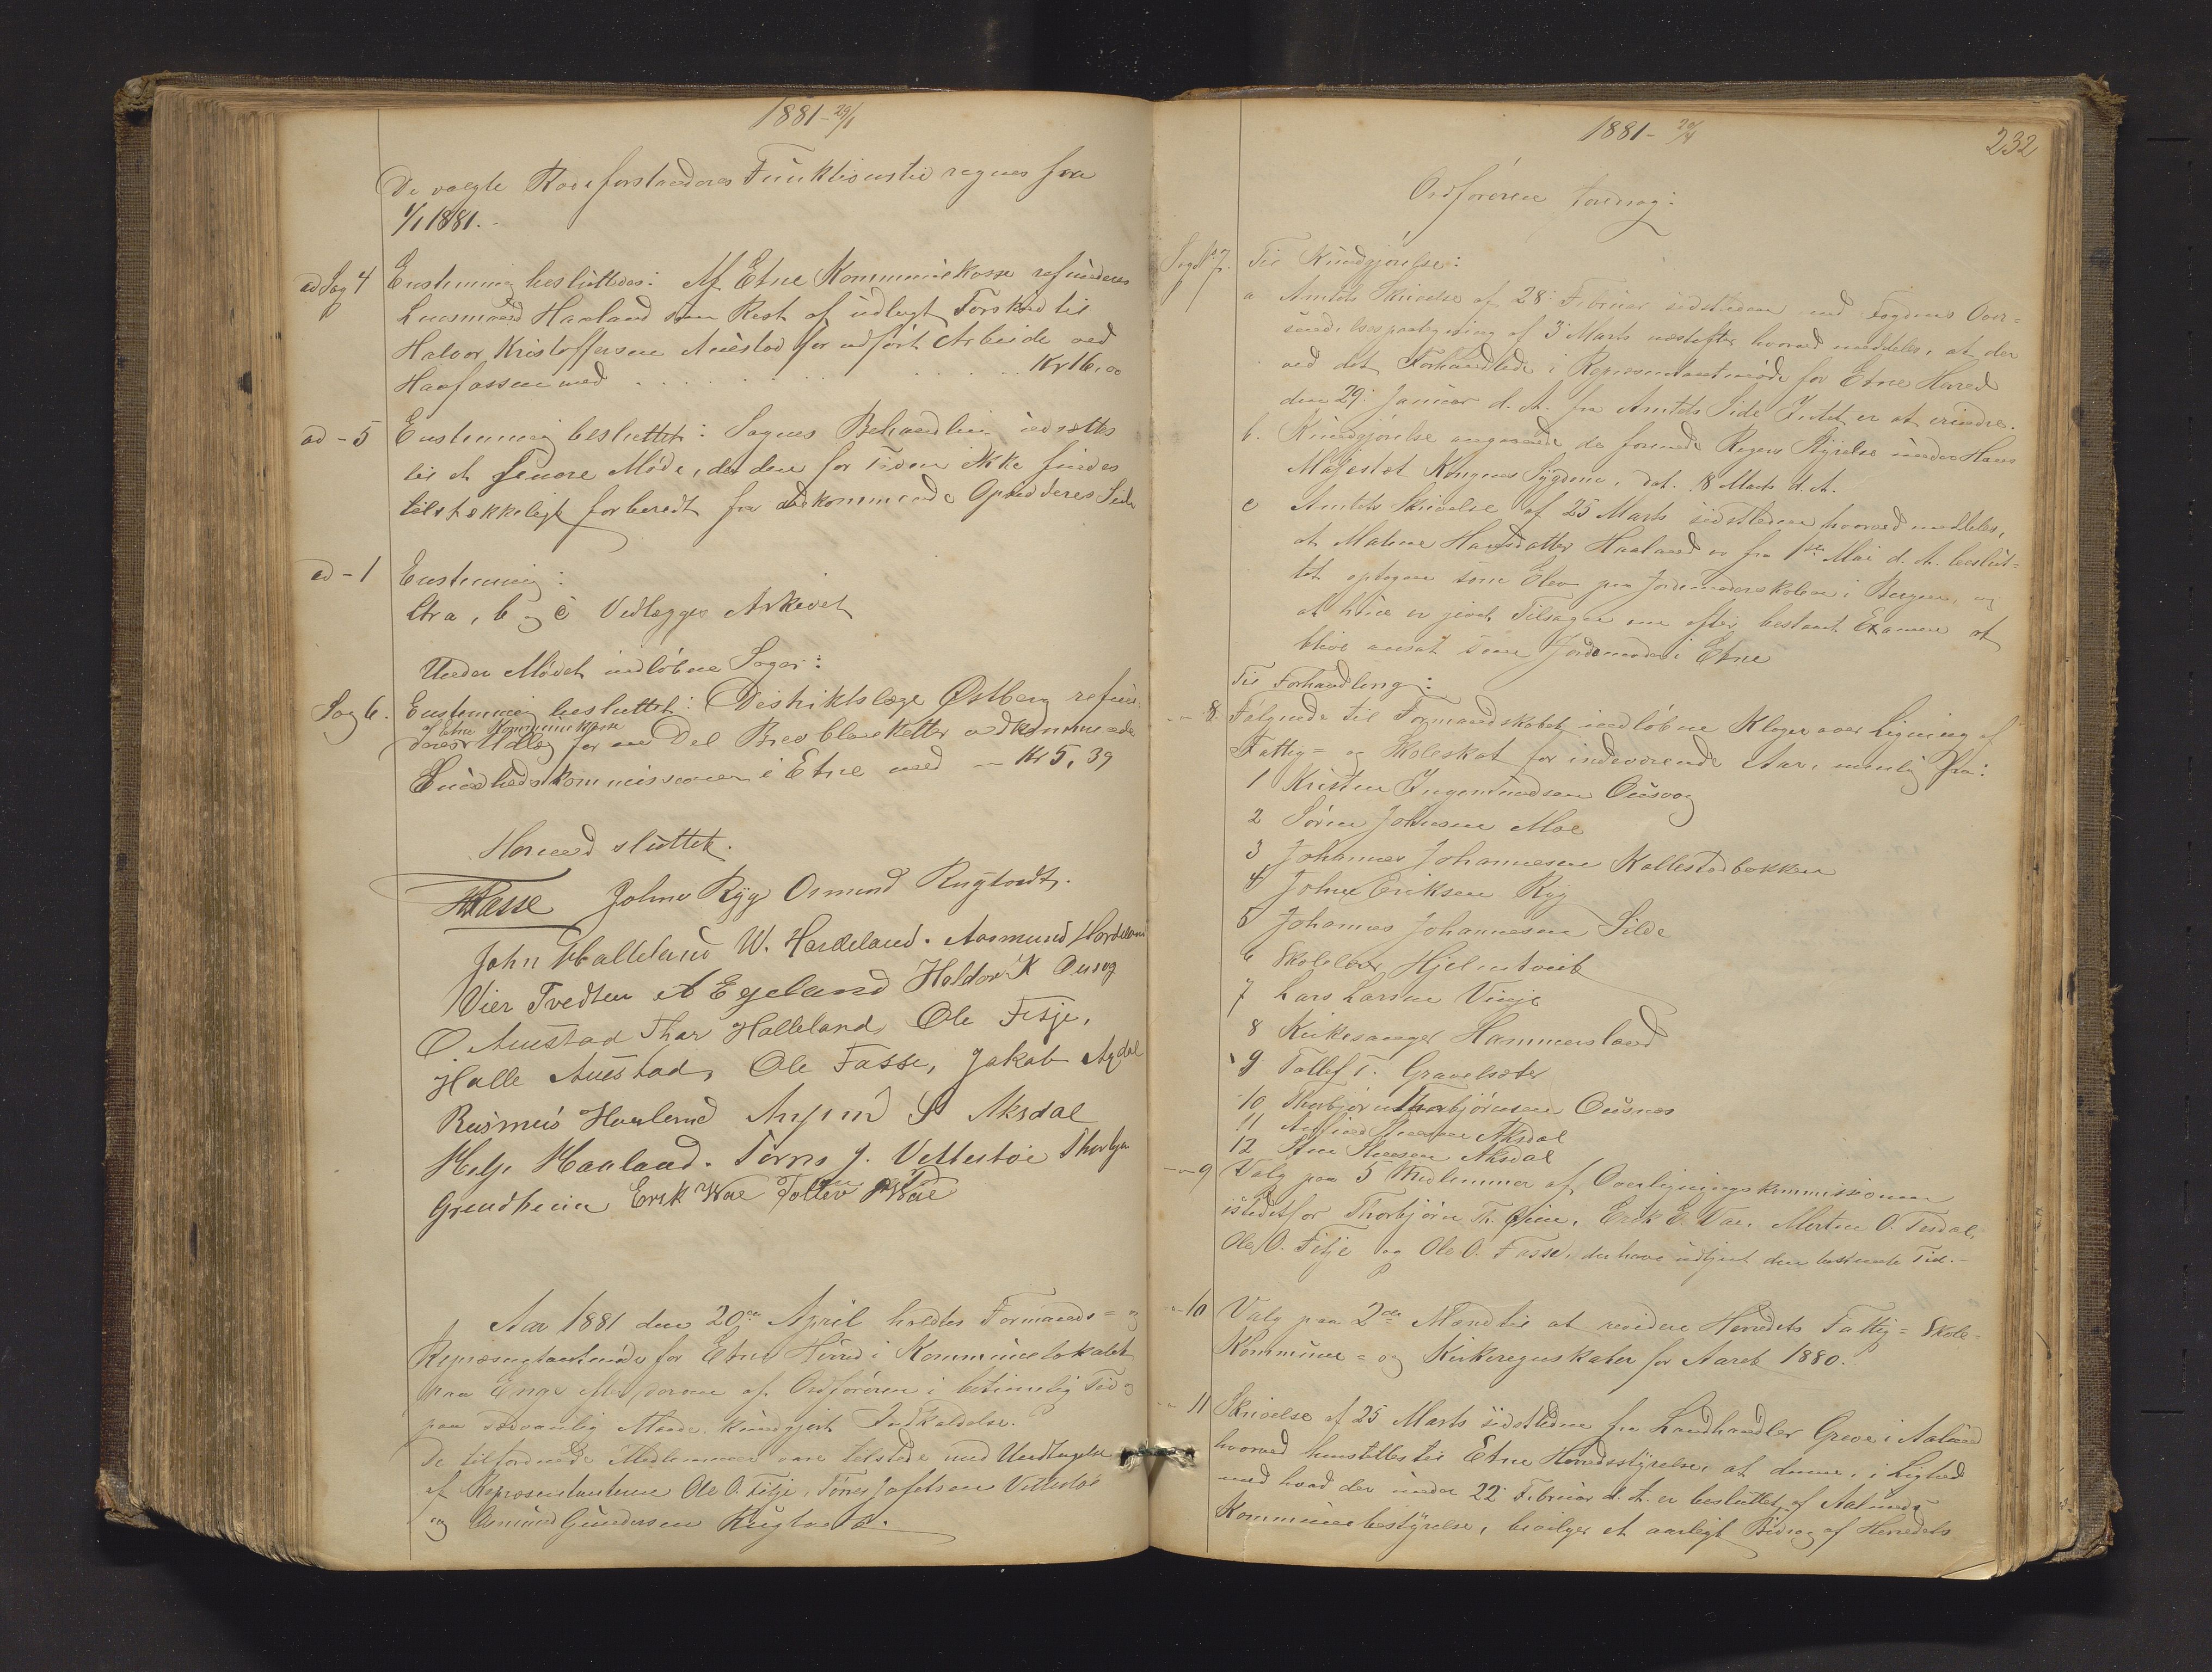 1881 - 29/1
De valgte Rodeforstanderes Funktionstid regnes fra
1/1 1881.
ad Sag 4 Enstemmig besluttedes: Af Etne Kommunekasse refunderes
Lensmand Haaland som Rest af udlagt Forskud til
Halvor Kristoffersen Austad for udført Arbeide ved
Haafassen med . . . . . . . . . Kr 16,00
ad - 5 Enstemmig besluttet: Sagens Behandling udsættes
til et senere Møde, da den for Tiden ikke findes
tilstrækkeligt forberedt fra vedkommende Opsidderes Side
ad - 1 Enstemmig:
Ltra, b og c Vedlægges Arkivet
Under Mødet indløbne Sager:
Sag 6. Enstemmig besluttet: Distriktslæge Østberg refun-
af Etne Kommunekasse
deres Udlæg for en Del Brevblanketter vedkommende
Sundhedskommissionen i Etne med — Kr 5,39
Hermed sluttet.
Fasse Johne Ryg Osmund Rugtvedt.
John Halleland W. Hardeland. Aasmund Hardeland
Vier Tvedten A Egeland Haldor K Ousvg
O. Austad Thor Halleland Ole Fitje,
Halle Austad, Ole Fasse, Jakob Agdal
Rasmus Haaland Anfind S Aksdal
Helje Haaland. Tørres J. Vettestøe Thorbjn
Grindheim Erik Wae Tollev Wae
Aar 1881 den 20de April holdtes Formands= og
Repræsentantmøde for Etne Herred i Kommunelokalet
paa Enge efter foran af Ordføreren i betimelig Tid og
paa sædvanlig Maade kundgjort Indkaldelse.
De tilforordnede Medlemmer vare tilstede med Undtagelse
af Repræsentanterne Ole O. Fitje, Tørres Jafetsen Vettestøe
og Osmund Gundersen Rugtvedt.
1881 - 20/4
232
Ordføreren foredrog:
Sag No 7. Til Kundgjørelse:
a Amtets Skrivelse af 28 Februar sidstleden med Fogdens Over=
sendelsespaategning af 3 Marts næstefter hvorved meddeles, at der
ved det Forhandlede i Repræsentantmøde for Etne Herred
den 29 Januar d. A. fra Amtets Side Intet er at erindre.
b. Kundgjørelse angaaende de formede Rigens Styrelse under Hans
Majestæt Kongens Sygdom, dat. 8 Marts d. A.
c Amtets Skrivelse af 25 Marts sidstleden hvorved meddeles,
at Malene Hansdatter Haaland er fra 1ste Mai d. A. beslut=
tet optagen som Elev paa Jordemoderskolen i Bergen, og
at hun er givet Tilsagn om efter bestaaet Examen at
blive ansat som Jordemoder i Etne
Til Forhandling:
- " 8. Følgende til Formandskabet indløbne Klager over Ligning af
Fattig= og Skoleskat for indeværende Aar, nemlig fra:
1 Kristen Ingemundsen Ousvog
2 Søren Johnsen Moe
3 Johannes Johannesen Kallestadbakken
4 John Eriksen Ryg
5 Johannes Johannesen Silde
6 Skolelærer Hjelmtveit
7 Lars Larsen Vinje
8 Kirkesanger Hammersland
9 Tollef T. Gravelsæter
10 Thorbjørn Thorbjørnsen Ousnes
11 Anfind Aksdal
12 Aksdal
- " 9 Valg paa 5 Medlemmer af Overligningskommissionen
istedetfor Thorbjørn Th. Erik E. Vae, Morten O. Tesdal,
Ole O. Fitje og Ole O. Fasse, der have udtjent den bestemte Tid.-
- " 10 Valg paa 2de Mænd til at revidere Herredets Fattig= Skole=
Kommune= og Kirkeregnskaber for Aaret 1880.
- " 11 Skrivelse af 25 Marts sidstleden fra Landhandler Greve i Aalund
hvorved henstilles til Etne Herredsstyrelse, at denne, i Lighed
med hvad der under 22 Februar d. A. er besluttet af
Kommunebestyrelse, bevilger et aarligt Bidrag af Herredets